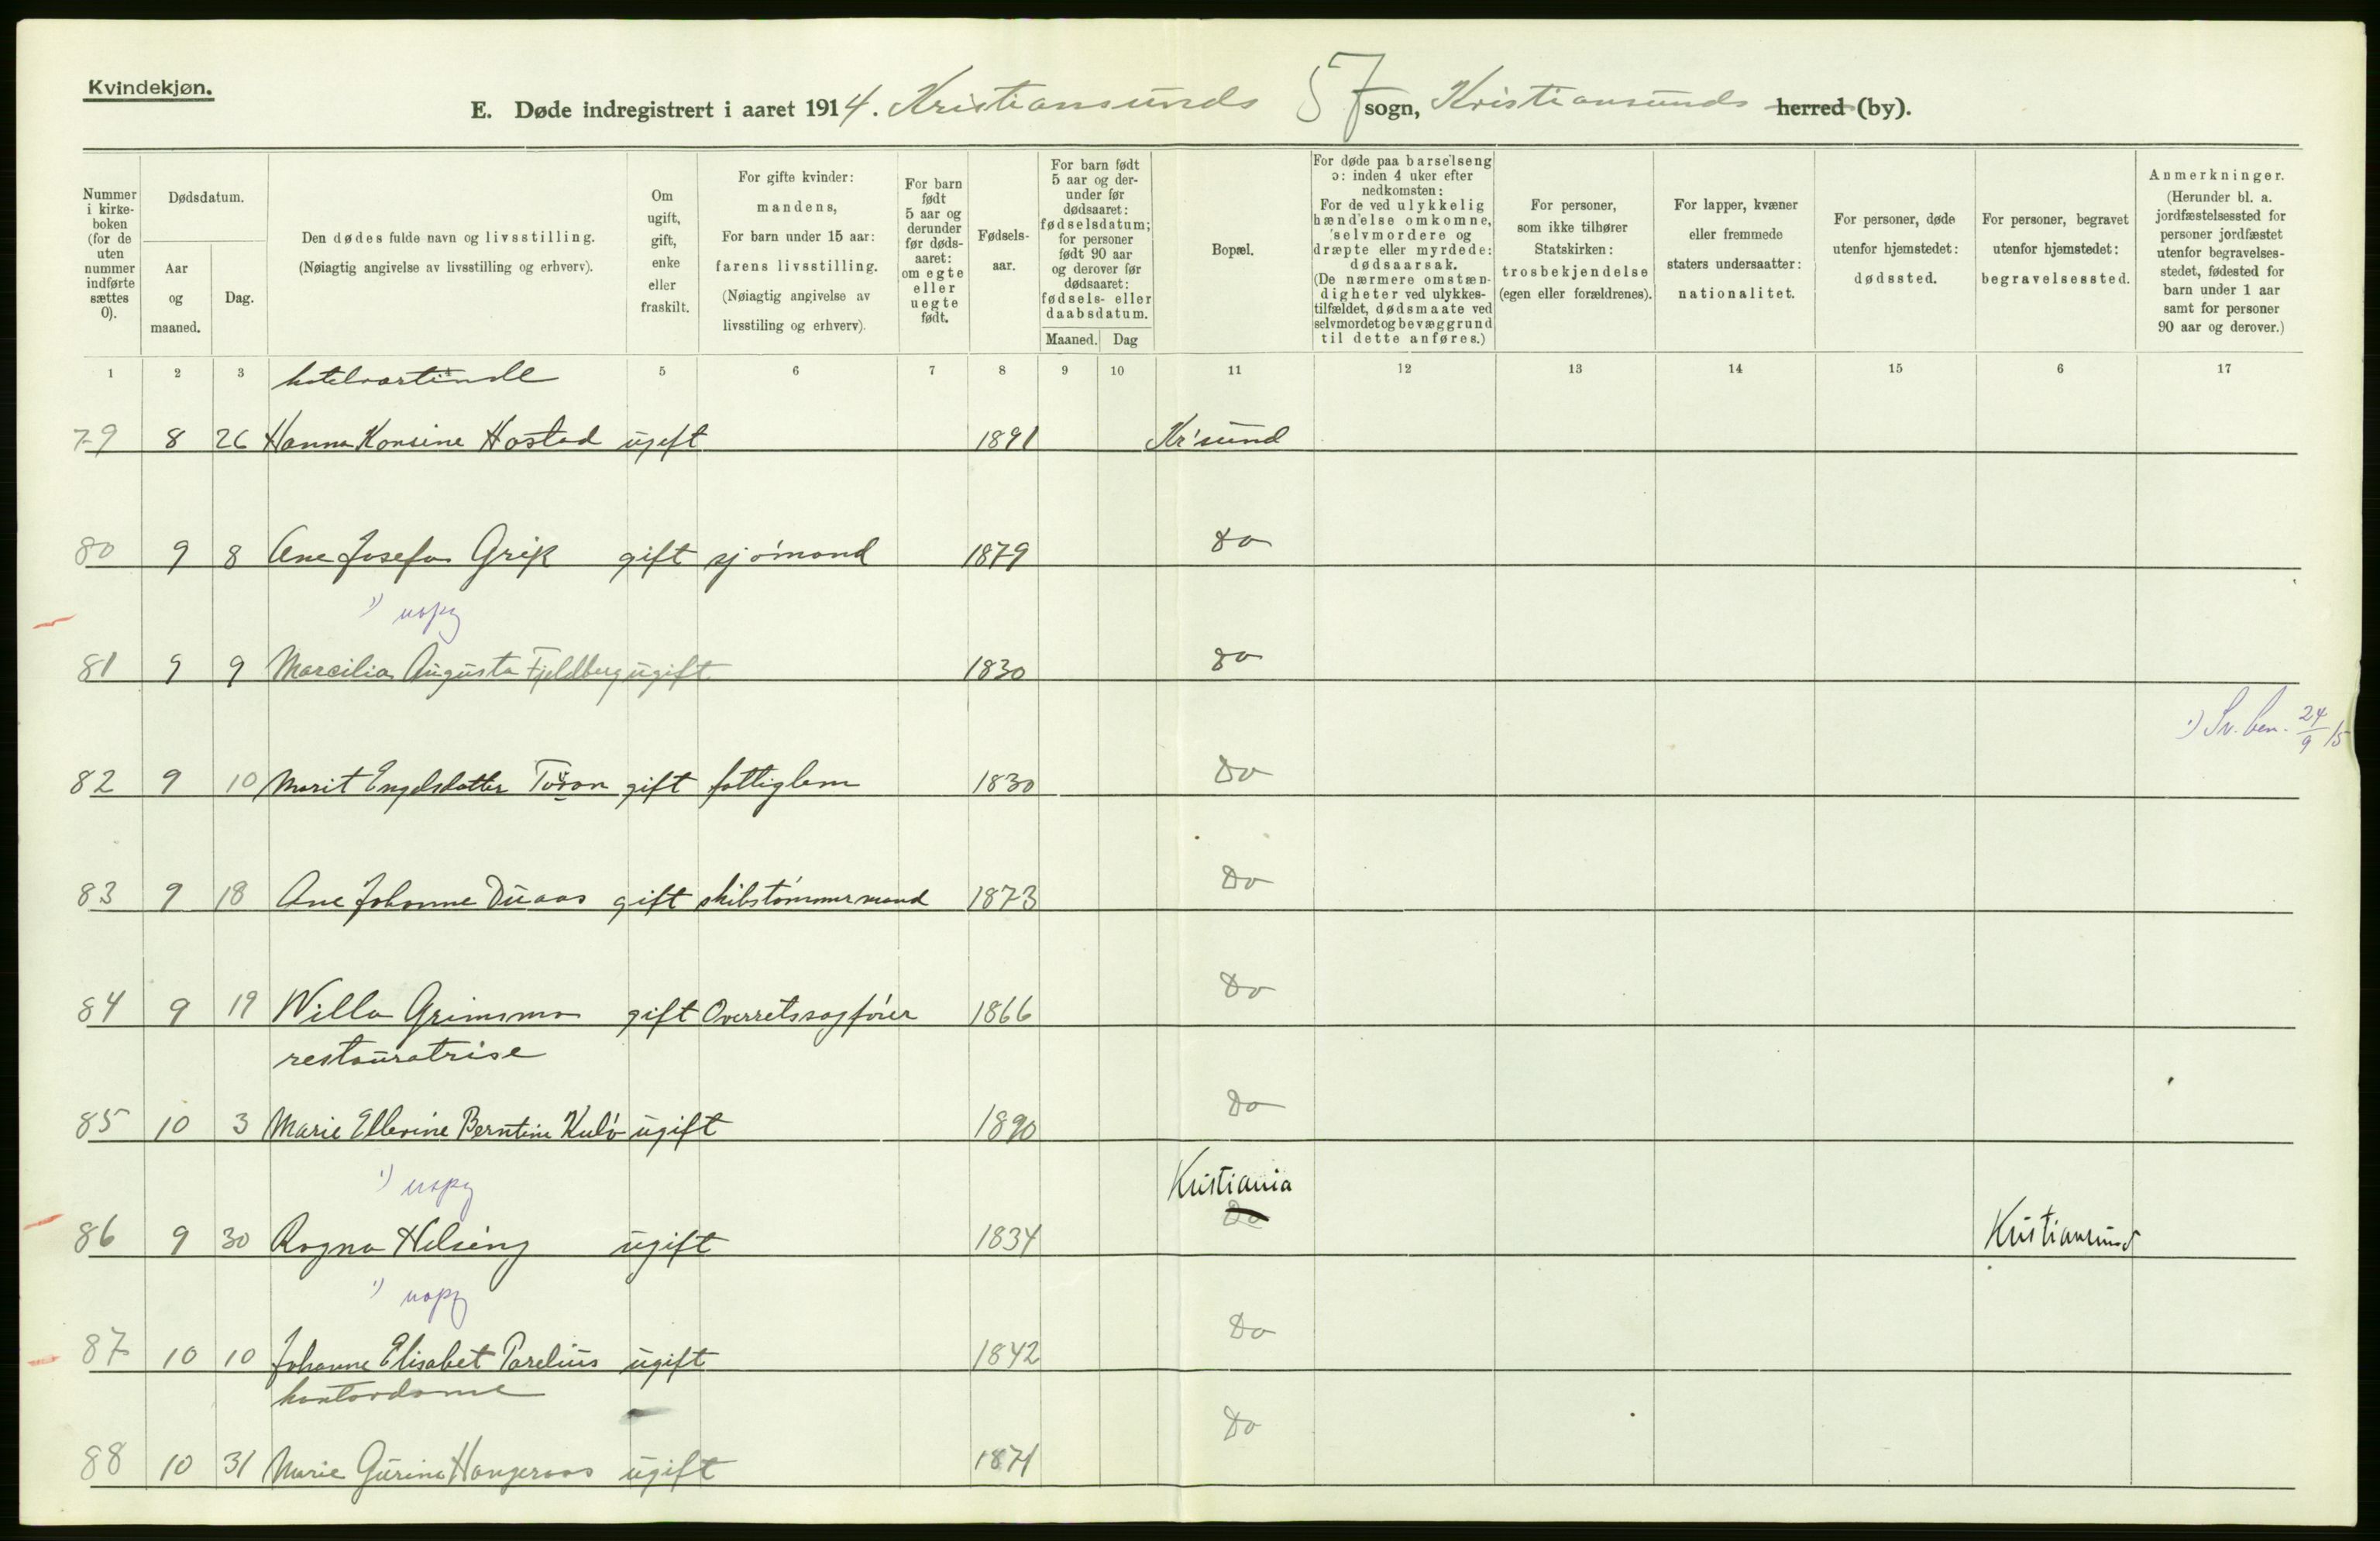 Kvindekjøn.
E. Døde indregistrert i aaret 1914. Kristiansunds sogn, Kristiansunds herred (by).
57
Nummer i kirke-boken (for de uten nummer indførte sættes 0).
Dødsdatum.
Aar og maaned.
Dag.
Den dødes fulde navn og livsstilling.
(Nøiagtig angivelse av livsstilling og erhverv).
Om ugift, gift, enke eller fraskilt.
For gifte kvinder: mandens,
For barn under 15 aar: farens livsstilling.
(Nøiagtig angivelse av livsstiling og erhverv).
For barn født 5 aar og derunder før døds-aaret: om egte eller uegte født.
Fødsels-aar.
For barn født 5 aar og der-under før dødsaaret: fødselsdatum; for personer født 90 aar og derover før dødsaaret: fødsels- eller daabsdatum.
Maaned. Dag
Bopæl.
For døde paa barselseng ɔ: inden 4 uker efter nedkomsten:
For de ved ulykkelig hændelse omkomne, selvmordere og dræpte eller myrdede: dødsaarsak.
(De nærmere omstæn-digheter ved ulykkes-tilfældet, dødsmaate ved selvmordet og bevæggrund til dette anføres.)
For personer, som ikke tilhører Statskirken: trosbekjendelse (egen eller forældrenes).
For lapper, kvæner eller fremmede staters undersaatter: nationalitet.
For personer, døde utenfor hjemstedet: dødssted.
For personer, begravet utenfor hjemstedet: begravelsessted.
Anmerkninger.
(Herunder bl. a. jordfæstelsessted for personer jordfæstet utenfor begravelses-stedet, fødested for barn under 1 aar samt for personer 90 aar og derover.)
1 2 3 4 5 6 7 8 9 10 11 12 13 14 15 6 17
hotelvartinde
79 8 26 Hanna Konsine Hostad ugift 1891 Kr'sund
80 9 8 Ane Josefa Grip gift sjømand 1879 Do
1) uopg
81 9 9 Marcilia Augusta Fjeldberg ugift 1830 Do
1) Sv. ben. 24/9 15
82 9 10 Marit Engelsdatter gift fattiglem 1830 Do
83 9 18 Ane Johanne Duaas gift skibstømmermand 1873 Do
84 9 19 Willa Grimsmo gift Overretssagfører 1866 Do
restauratrise
85 10 3 Marie Ellevine Berntine Kulø ugift 1890 Do
1) uopg
86 9 30 Ragna Helsing ugift 1834 Kristiania Do Kristiansund
1) uopg
87 10 10 Johanne Elisabet Parelius ugift 1842 Do
kontordame
88 10 31 Marie Gurina Haugeraas ugift 1871 Do